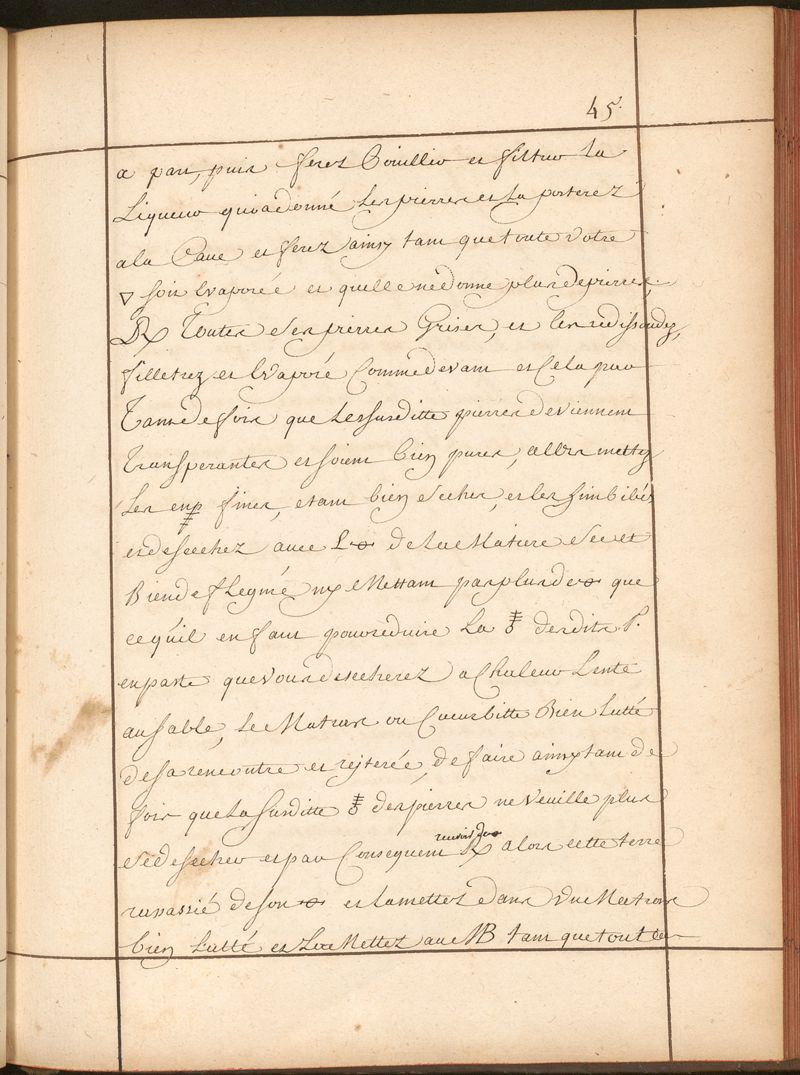 45.
a part, puis ferez Bouillir et filtrer La
Liqueur qui a donné Les pierres et La porterez
a la Cave et ferez ainsy tant que toute votre
▽ soit Evaporée et quelle ne donne plus de pierres,
℞ Toutes Ses pierres Grises, et les redissoudez,
filletrez et Evaporé Comme devant et Cela par
Tant de fois que Les susditte pierres deviennent
Transperantes et soient bien pures, allors mettez
Les en p fines, etant bien Seches, et les Jmbibés
et desechez avec L de La Nature Sec et
Bien deflegmé ny Mettant pas plus de que
ce quil en faut pour reduire La desdits P.
en paste que vous desecherez a Chaleur Lente
au sable, Le Matras ou Cucurbitte Bien Lutté
de sa rencontre et rejterée, de faire ainsy tant de
fois que La susditte des pierres ne Veuille plus
Se desecher et par Consequent recevoir d ℞ alors cette terre
rapassié de son et La mettez dans Vne Matras
bien Lutté et Le Mettez au MB tant que tout le